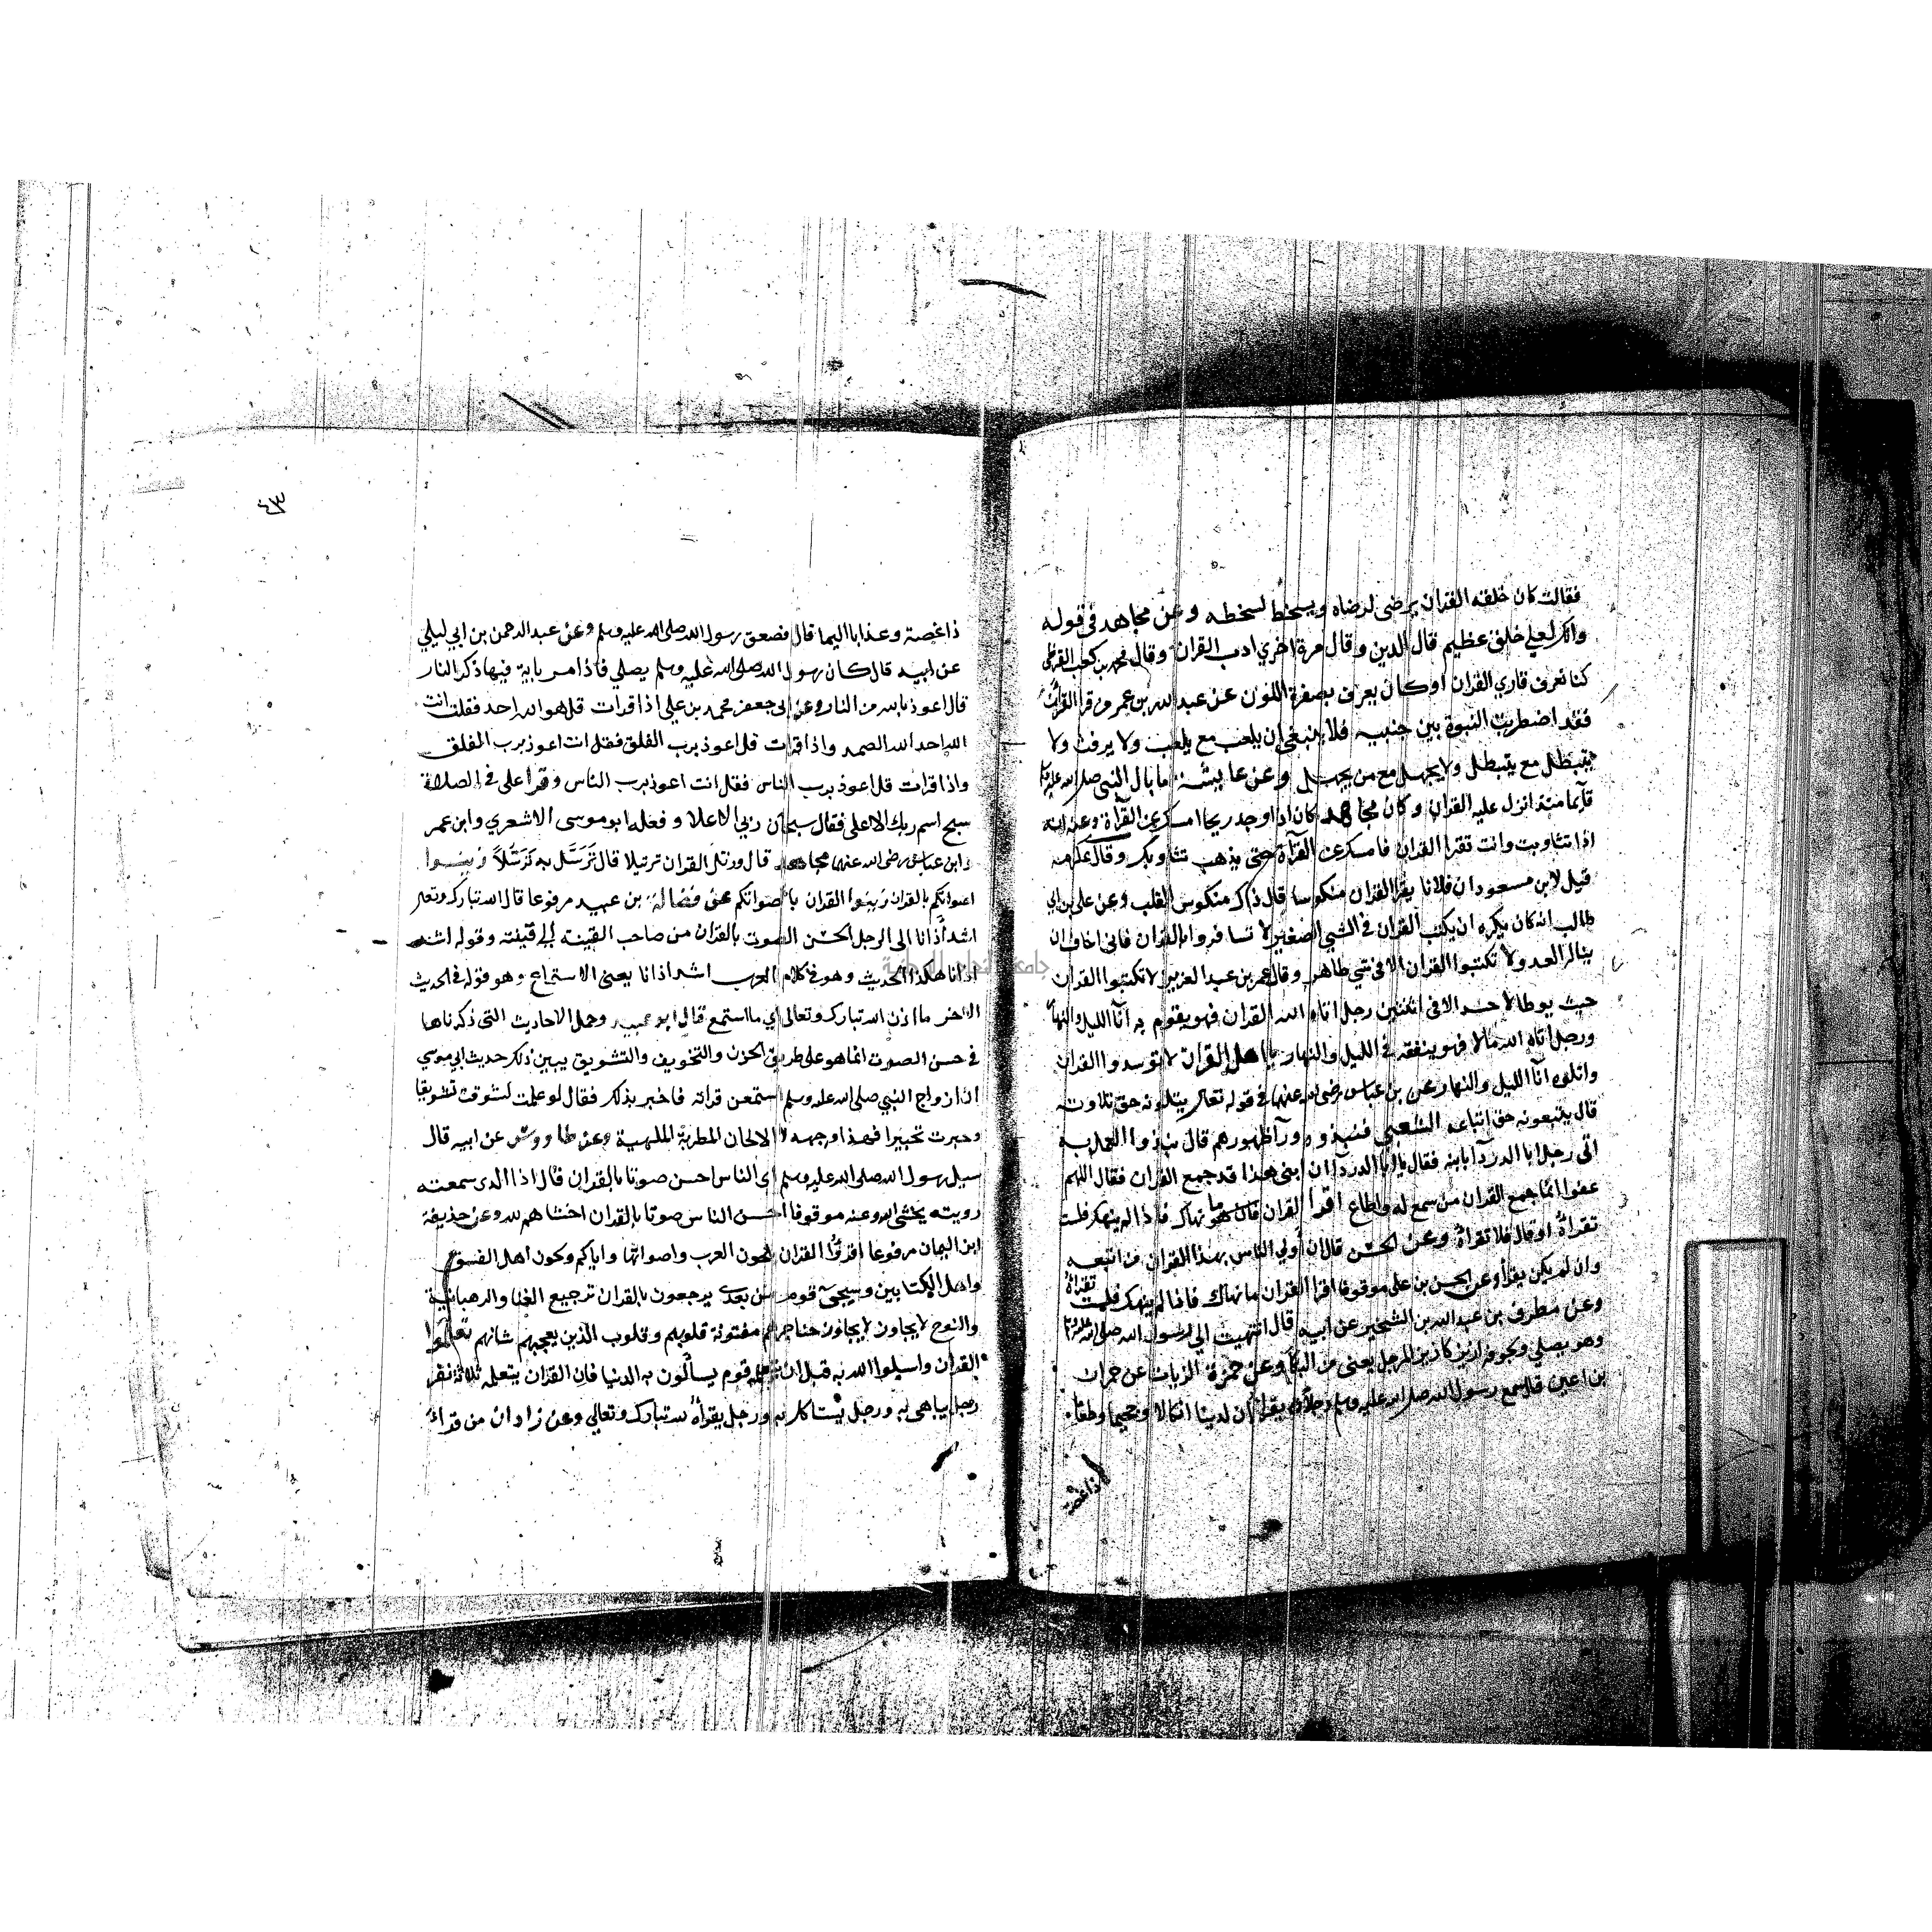 فقالت كان خلقه القران يرضى لرضاه ويسخط لسخطه وعن مجاهد في قوله
وانك لعلي خلق عظيم قال الدين وقال مرة اخري ادب القران وقال محمد بن كعب القرظي
كنا نعرف قاري القران اوكان يعرف بصفرة اللون عن عبد الله بن عمرو من قرا القران
فقد اضطربت النبوة بين جنبيه فلا ينبغي ان يلعب مع يلعب ولا يرفث ولا
يتبطل مع يتبطل ولا يجهل مع من يجهل وعن عايشة ما بال النبي صلى الله عليه وسلم
قايما منذ انزل عليه القران وكان مجاهد كان اذا وجد ريحا امسك عن القرآة وعنه ايضا
اذا تثاوبت وانت تقرا القران فامسك عن القرآة حتى يذهب تثاوبك وقال عكرمه
قيل لابن مسعود ان فلانا يقرا القران منكوسا قال ذاك منكوس القلب وعن علي بن ابي
طالب انه كان يكره ان يكتب القران في الشي الصغير لا تسافروا بالقران فاني اخاف ان
يناله العدو ولا تكتبوا القران الا في شي طاهر وقال عمر بن عبد العزيز لا تكتبوا القران
حيث يوطا لا حسد الا في اثنتين رجل اتاه الله القران فهو يقوم به آنآ الليل والنهار
ورجل اتاه الله مالا فهو ينفقه في الليل والنهار يا اهل القران لا توسدوا القران
واتلوه آنآ الليل والنهار عن بن عباس رضي الله عنهما في قوله تعالى يتلونه حق تلاوته
قال يتبعونه حق اتباعه الشعبي فنبذوه ورآ ظهورهم قال نبذوا العمل به
اتى رجل ابا الدردآ بابنه فقال يا ابا الدردآ ان ابني هذا قد جمع القران فقال اللهم
عفوا انما جمع القران من سمع له واطاع اقرا القران ما نهاك فاذا لم ينهك فلست
تقراه او قال فلا تقراه وعن الحسن قال ان أولي الناس بهذا القران من اتبعه
وان لم يكن يقرأ وعن الحسن بن على موقوفا اقرا القران ما نهاك فاذا لم ينهك فلست تقراه
وعن مطرف بن عبد الله بن الشخير عن ابيه قال انتهيت الي رسول الله صلى الله عليه وسلم
وهو يصلي ولجوفه ازيز كازيز المرجل يعنى من البكآ وعن حمزة الزيات عن حمران
بن اعين قال سمع رسول الله صلى الله عليه وسلم رجلا يقرا ان لدينا انكالا وجحيما وطعاما
ذا غصة
٤٣
ذا غصة وعذابا اليما قال فصعق رسول الله صلى الله عليه وسلم وعن عبد الرحمن بن ابي ليلي
عن ابيه قال كان رسول الله صلى الله عليه وسلم يصلي فاذا مر باية فيها ذكر النار
قال اعوذ بالله من النار وعن ابى جعفر محمد بن علي اذا قرات قل هو الله احد فقل انت
الله احد الله الصمد واذا قرات قل اعوذ برب الفلق فقل انت اعوذ برب الفلق
واذا قرات قل اعوذ برب الناس فقل انت اعوذ برب الناس وقرأ على في الصلاة
سبح اسم ربك الاعلى فقال سبحان ربي الاعلا وفعله ابو موسى الاشعري وابن عمر
وابن عباس رضى الله عنهم مجاهد قال ورتل القران ترتيلا قال تَرَسَّل به تَرَسُّلاً زينوا
اصواتكم بالقران زينوا القران باصواتكم عن فضالة بن عبيد مرفوعا قال الله تبارك وتعالى
اشد أذانا الى الرجل الحسن الصوت بالقران من صاحب القينة الي قينته وقوله اشد
اذانا هكذا الحديث وهو في كلام العرب اشد اذانا يعنى الاستماع وهو قوله في الحديث
الاخر ما اذن الله تبارك وتعالى اي ما استمع قال ابو عبيد وحمل الاحاديث التى ذكرناها
في حسن الصوت انما هو على طريق الحزن والتخويف والتشويق يبين ذلك حديث ابي موسي
ان ازواج النبي صلى الله عليه وسلم استمعن قراته فاخبر بذلك فقال لو علمت لشوقت تشويقا
وحبرت تحبيرا فهذا وجهه لا الالحان المطربة الملهية وعن طاووس عن ابيه قال
سيل رسول الله صلى الله عليه وسلم اى الناس احسن صوتا بالقران قال اذا الذى سمعته
رويته يخشى الله وعنه موقوفا احسن الناس صوتا بالقران اخشاهم لله وعن حذيفة
ابن اليمان مرفوعا اقرؤا القران بلحون العرب واصواتها واياكم ولحون اهل الفسوق
واهل الكتابين وسيجئ قوم من بعدى يرجعون بالقران ترجيع الغنا والرهبانية
والنوح لا يجاوز حناجرهم مفتونة قلوبهم وقلوب الذين يعجبهم شانهم تعلموا
القران واسيلوا الله به قبل ان يتعلمه قوم يسألون به الدنيا فان القران يتعلمه ثلاثة نفر
رجل يباهى به ورجل يستاكل به ورجل يقرأه لله تبارك وتعالي وعن زادان من قرا